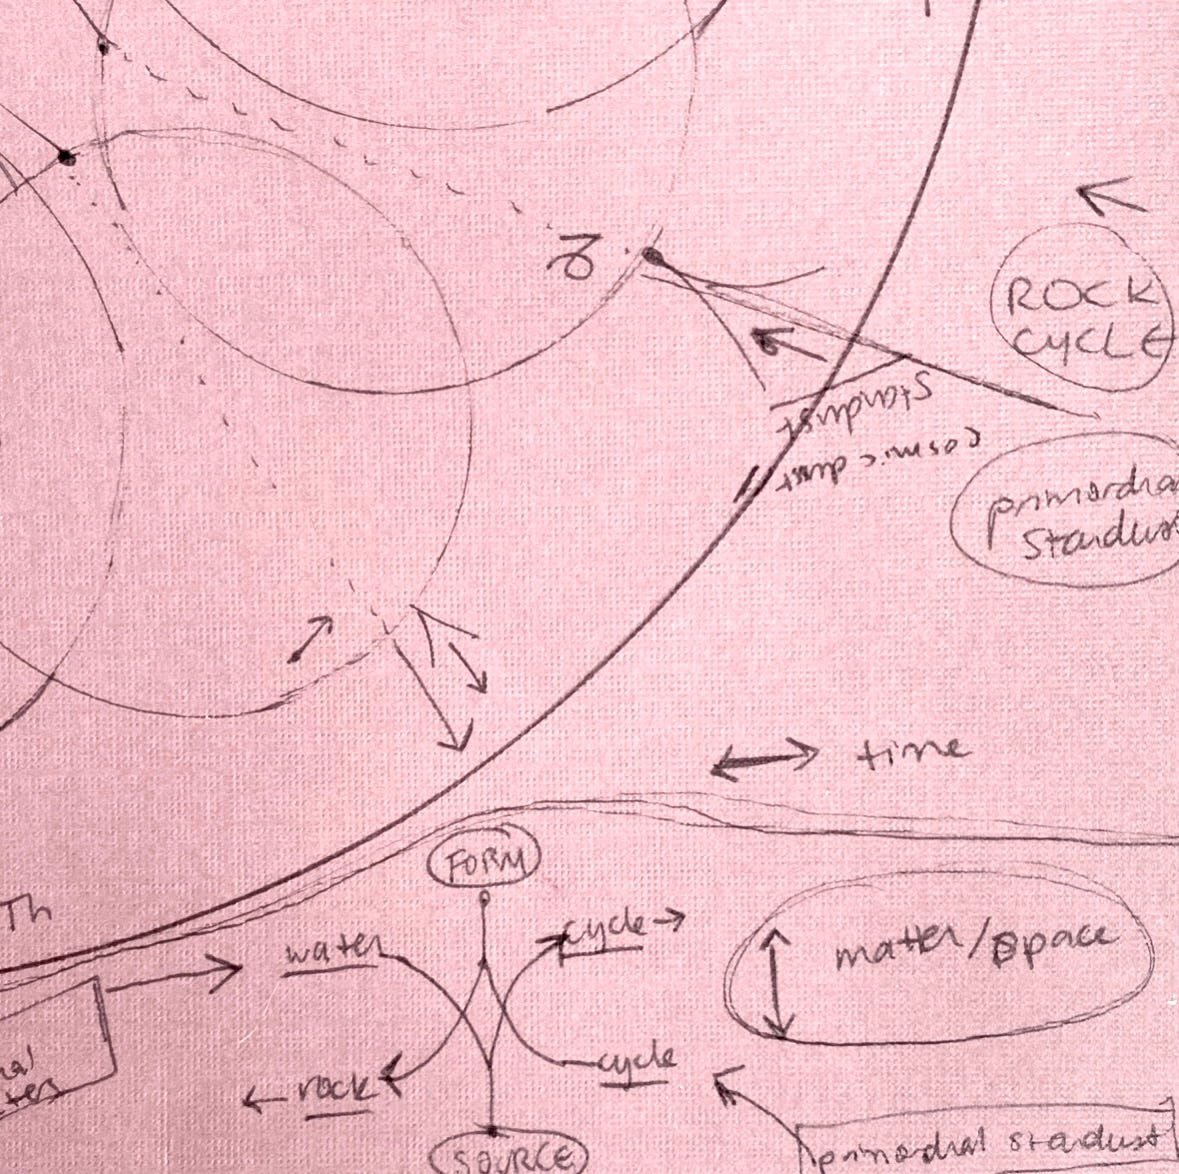 ROCK
CYCLE
Stardust
cosmic dust
primordia
Stardus
time
FORM
Th
water
cycle
matter/space
rock
cycle
SOURCE
primordial stardust